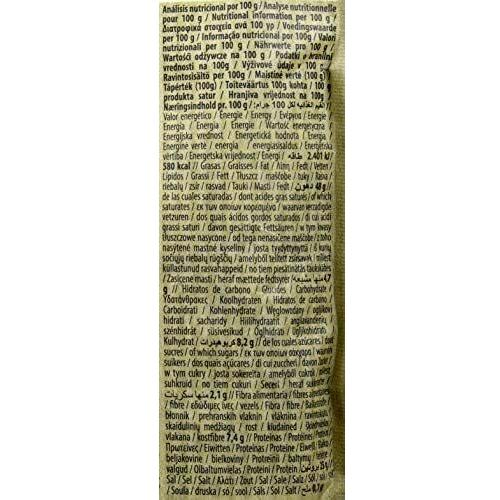 Análisis nutricional por 100 g / Analyse nutritionnelle
pour 100 g / Nutritional information per 100 g /
Διατροφικα στοιχεία ανά 100 γρ / Voedingswaarde
per 100 g / Informação nutricional por 100 g / Valori
nutrizionali per 100 g / Nährwerte pro 100 g /
Wartości odżywcze na 100 g / Podatki o hranilni
vrednosti na 100g / Výživové údaje v 100 g
Ravintosisältö per 100g / Maistinė vertė (100 g)
Tápérték (100g) / Toiteväärtus 100g kohta / 100 g
produkta satur / Hranjiva vrijednost na 100g /
Næringsindhold pr. 100 g / القيم الغذائية لكل 100 جرام:
Valor energético / Énergie / Energy / Ενέργεια / Energie
Energia / Energia / Energie / Wartość energetyczna
Energijska vrednost / Energetická hodnota / Energia
Energinė vertė / energia / energiasisaldus / Enerģētiskā
vērtība / Energetska vrijednost / Energi / طاقة 2.401 kJ/
580 kcal // Grasas / Graisses / Fat / Λίπη / Vetten
Lípidos / Grassi / Fett / Tłuszcz / maščobe / tuky / Rasva
riebalų / zsír / rasvad / Tauki / Masti / Fedt / دهون 48 g //
de las cuales saturadas / dont acides gras saturés / of which
saturates / εκ των οποίων κορεσμένα / waarvan verzadigde
vetzuren / dos quais ácidos gordos saturados / di cui acidi
grassi saturi / davon gesättigte Fettsäuren / w tym kwasy
tłuszczowe nasycone / od tega nenasičene maščobe / z toho
nasýtené mastné kyseliny / josta tyydyttynyttä / iš kurių
sočiųjų riebalų rūgščių / amelyből telített zsírsavak / millest
küllastunud rasvahappeid / no tiem piesātinātās taukskābes
/ Zasićene masti / heraf mættede fedtsyrer / منها مشبعة 4,7
g // Hidratos de carbono / Glucides / Carbohydrate
Υδατάνθρακες / Koolhydraten / Hidratos de carbono /
Carboidrati / Kohlenhydrate / Węglowodany / ogljikovi
hidrati / sacharidy / Hiilihydraatit / angliavandenių
szénhidrát / süsivesikud / Ogļhidrāti / Ugljikohidrati /
Kulhydrat / كربوهيدرات 8,2 g // de los cuales azúcares / dont
sucres / of which sugars / εκ των οποίων σάκχαρα / waarvan
suikers / dos quais açúcares / di cui zuccheri / davon Zucker /
w tym cukry / josta sokereita / amelyből cukrok / millest
suhkroid / no tiem cukuri / Šećeri / heraf sukker
/ منها سكريات 2,1 g // Fibra alimentaria / fibres alimentaires
/ fibre / εδώδιμες ίνες / vezels / Fibra / fibre / Ballaststoffe
błonnik / prehranskih vlaknin / vláknina / ravintokuitu
skaidulinių medžiagų / rost / kiudained / šķiedrvielas
vlakana / kostfibre 7,4 g // Proteínas / Protéines / Protein
Πρωτεΐνες / Eiwitten / Proteínas / Proteine / Eiweiß /
beljakovine / bielkoviny / Proteiinii / baltymų / fehérje
valgud / Olbaltumvielas / Proteini / Protein / بروتين
Sal / Sel / Salt / Αλάτι / Zout / Sal / Sale / Salz / Sól / Sol /
Soula / druska / só / sool / Sāls / Sol / Salt / ملح